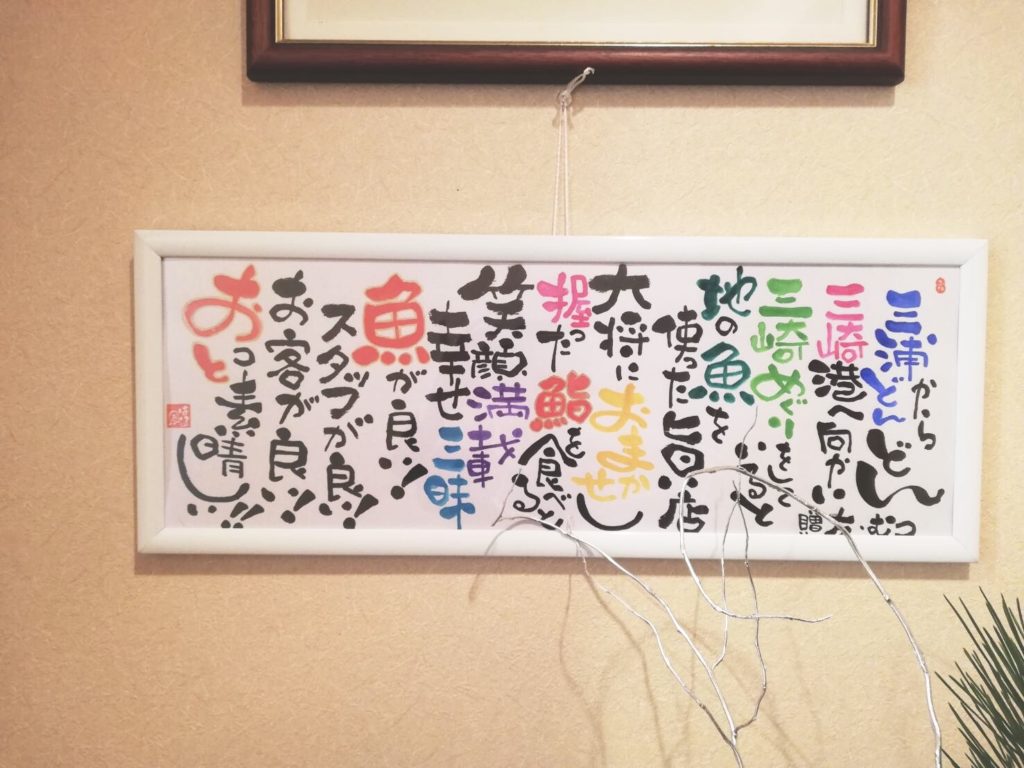 三浦から
どんどん
三崎港へ向かい
三崎めぐりをしていると
地の魚を
使った旨い店
大将におまかせし
握った鮨を食べる
笑顔満載
幸せ三昧
魚が良い!
スタブが良い!!
お客が良い!!
おとっ素晴しい!!
贈